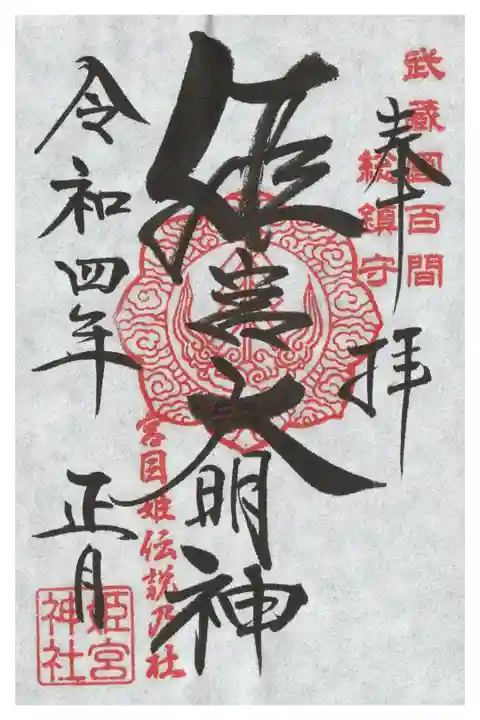 武蔵國百間
総鎮守
奉拝
姫宮大明神
宮目姫伝説乃社
令和四年 正月
姫宮
神社